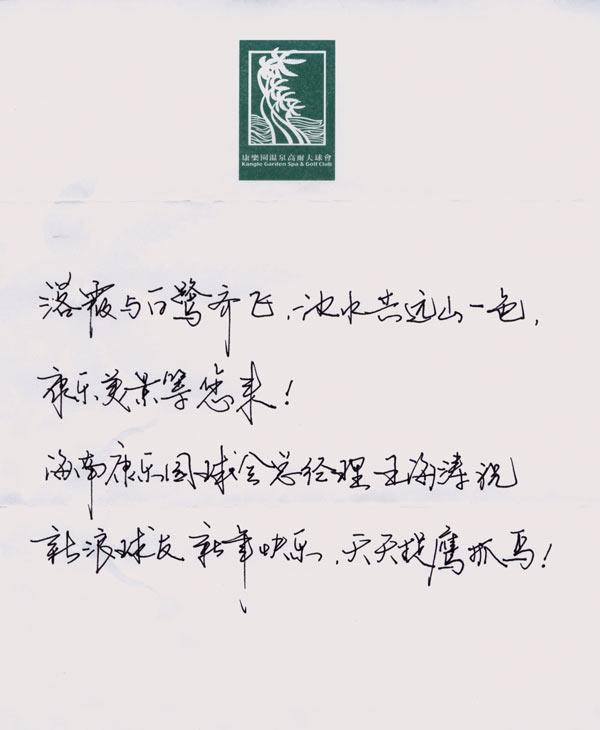 康樂園溫泉高爾夫球會
Kangle Garden Spa & Golf Club
落霞与白鹭齐飞，池水共远山一色，
康乐美景等您来！
海南康乐园球会总经理王海涛祝
新浪球友新年快乐，天天捉鹰抓鸟！